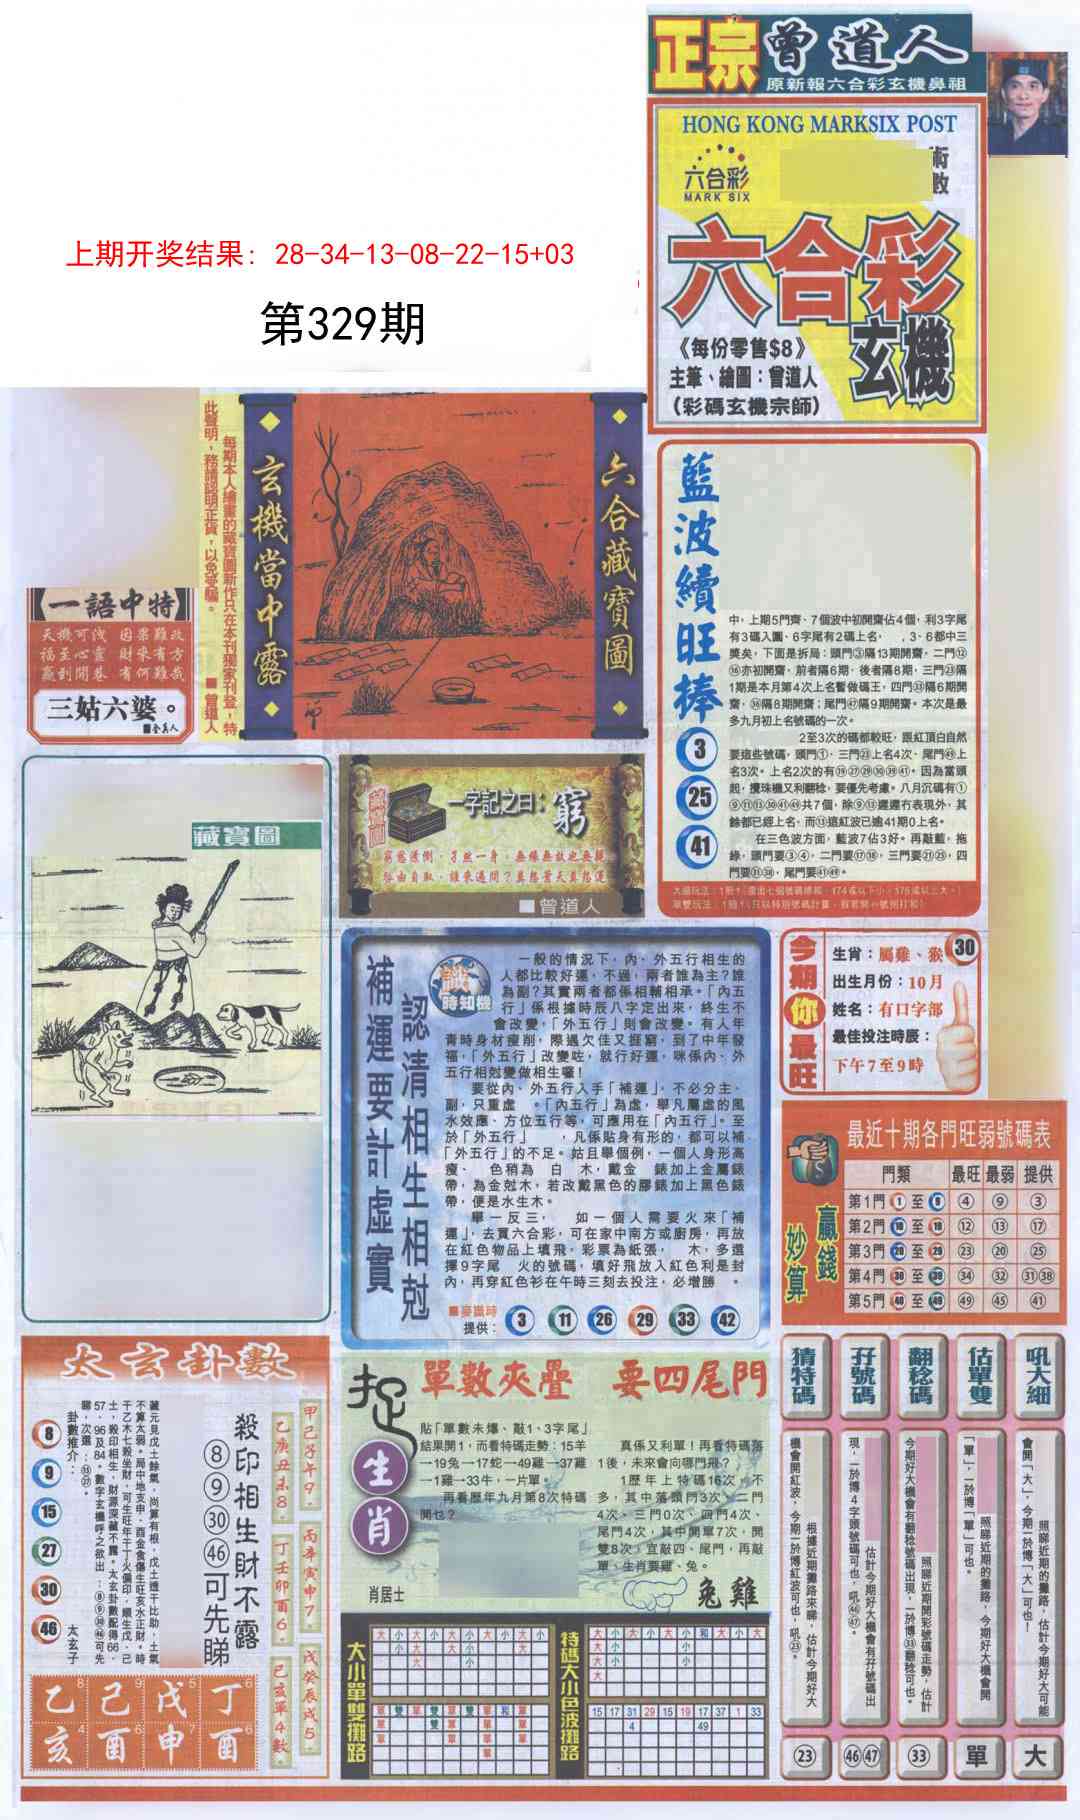 正宗曾道人
原新報六合彩玄機鼻祖
HONG KONG MARKSIX POST
六合彩
MARK SIX
術數
六合彩
玄機
《每份零售$8》
主筆、繪圖：曾道人
（彩碼玄機宗師）
上期开奖结果: 28-34-13-08-22-15+03
第329期
每期本人繪畫的藏寶圖新作只在本刊獨家刊登，特
此聲明，務請認明正貨，以免受騙。
■曾道人
玄機當中露
六合藏寶圖
【一語中特】
天機可淺 因果難改
福至心靈 財來有方
三姑六婆。
藏寶圖
一字記之曰：窮
■曾道人
藍波續旺捧
3
25
41
中，上期5門齊、7個波中初開齋佔4個，利3字尾
有3碼入圍、6字尾有2碼上名， ，3、6都中三
獎矣，下面是拆局：頭門③隔13期開齋，二門⑫
⑯亦初開齋，前者隔6期，後者隔6期，三門㉓隔
1期是本月第4次上名暫做碼王，四門㉝隔6期開
齋，㊱隔8期開齋；尾門㊼隔9期開齋。本次是最
多九月初上名號碼的一次。
2至3次的碼都較旺，跟紅頂白自然
要這些號碼，頭門①，三門㉓上名4次、尾門㊾上
名3次。上名2次的有⑲㉗㉙㉚㊴㊶。因為當頭
起，攪珠機又利翻稔，要優先考慮。八月沉碼有①
⑨⑪⑬㉚㊶㊾共7個，除⑨⑬遲遲冇表現外，其
餘都已經上名，而⑬這紅波已逾41期0上名。
在三色波方面，藍波7佔3好。再敲藍，拖
綠，頭門要③④，二門要⑰⑯，三門要㉑㉕，四
門要㉛㊳，尾門要㊶㊾。
補運要計虛實
認清相生相尅
識時知機
一般的情況下，內、外五行相生的
人都比較好運，不過，兩者誰為主？誰
為副？其實兩者都係相輔相承。「內五
行」係根據時辰八字定出來，終生不
會改變，「外五行」則會改變。有人年
青時身材瘦削，際遇欠佳又捱窮，到了中年發
福，「外五行」改變咗，就行好運，咪係內、外
五行相尅變做相生囉！
要從內、外五行入手「補運」，不必分主、
副，只重虛 。「內五行」為虛，舉凡屬虛的風
水效應、方位五行等，可應用在「內五行」。至
於「外五行」 ，凡係貼身有形的，都可以補
「外五行」的不足。姑且舉個例，一個人身形高
瘦、 色稍為 白 木，戴金 錶加上金屬錶
帶，為金尅木，若改戴黑色的膠錶加上黑色錶
帶，便是水生木。
舉一反三， 如一個人需要火來「補
運」，去買六合彩，可在家中南方或廚房，再放
在紅色物品上填飛，彩票為紙張， 木，多選
擇9字尾 火的號碼，填好飛放入紅色利是封
內，再穿紅色衫在午時三刻去投注，必增勝 。
提供： 3 11 26 29 33 42
今期你最旺
生肖：屬雞、猴 30
出生月份：10月
姓名：有口字部
最佳投注時辰：
下午7至9時
贏錢妙算
最近十期各門旺弱號碼表
門類 最旺 最弱 提供
第1門 1至9 ④ ⑨ ③
第2門 10至19 ⑫ ⑬ ⑰
第3門 20至29 ㉓ ⑳ ㉕
第4門 30至39 ㉞ ㉜ ㉛㊳
第5門 40至49 ㊾ ㊺ ㊶
太玄卦數
甲己子午9.
乙庚丑未8.
丙辛寅申7.
丁壬卯酉6.
戊癸辰戌5.
巳亥單4數.
殺印相生財不露
⑧⑨㉚㊻可先睇
卦數推介：
8 9 15 27 30 46
太玄子
乙 己 戊 丁
亥 酉 申 酉
捉生肖
單數夾疊 要四尾門
貼「單數未爆，敲1、3字尾」
結果開1，而看特碼走勢：15羊
→19兔→17蛇→49雞→37雞
→1雞→33牛，一片單。
再看歷年九月第8次特碼
開乜？
真係又利單！再看特碼落
1後，未來會向哪門飛？
1歷年上特碼16次，不
多，其中落頭門3次、二門
4次、三門0次、四門4次、
尾門4次，其中開單7次，開
雙8次，宜敲四、尾門，再敲
單，生肖要雞、兔。
肖居士
兔雞
大小單雙攤路
特碼大小色波攤路
15 17 31 29 15 19 17 37 1 33
4 49
猜特碼
根據近期攤路來睇，估計今期好大
機會開紅波，今期一於博紅波可也，吼㉓。
㉓
孖號碼
估計今期好大機會有孖號碼出
現，一於博4字頭號碼可也，吼㊻㊼。
㊻㊼
翻稔碼
照睇近期開彩號碼走勢，估計
今期好大機會有翻稔號碼出現，一於博㉝翻稔可也。
㉝
估單雙
照睇近期的攤路，今期好大機會開
「單」，一於博「單」可也。
單
吼大細
照睇近期的攤路，估計今期好大可能
會開「大」，今期一於博「大」可也！
大